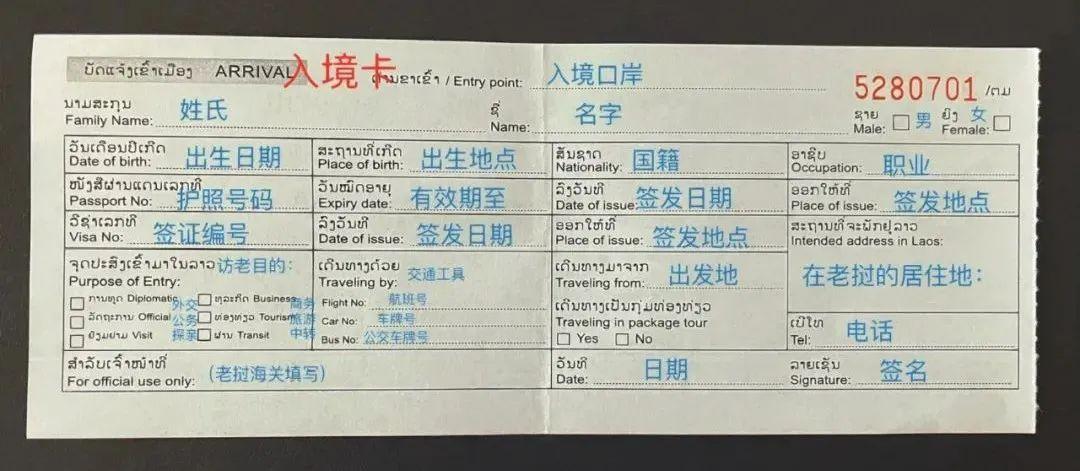 ບັດແຈ້ງເຂົ້າເມືອງ ARRIVAL 入境卡 ດ່ານຂາເຂົ້າ / Entry point: 入境口岸 5280701 /ຕມ
ນາມສະກຸນ 姓氏 ຊື່ 名字 ຊາຍ 男 ຍິງ 女
Family Name: Name: Male: Female:
ວັນເດືອນປີເກີດ ສະຖານທີ່ເກີດ ສັນຊາດ ອາຊີບ
Date of birth: 出生日期 Place of birth: 出生地点 Nationality: 国籍 Occupation: 职业
ໜັງສືຜ່ານແດນເລກທີ ວັນໝົດອາຍຸ ລົງວັນທີ ອອກໃຫ້ທີ່
Passport No: 护照号码 Expiry date: 有效期至 Date of issue: 签发日期 Place of issue: 签发地点
ວີຊ່າເລກທີ ລົງວັນທີ ອອກໃຫ້ທີ່ ສະຖານທີ່ຈະພັກຢູ່ລາວ
Visa No: 签证编号 Date of issue: 签发日期 Place of issue: 签发地点 Intended address in Laos:
ຈຸດປະສົງເຂົ້າມາໃນລາວ 访老目的: ເດີນທາງດ້ວຍ 交通工具 ເດີນທາງມາຈາກ 出发地 在老挝的居住地:
Purpose of Entry: Traveling by: Traveling from:
ການທູດ Diplomatic 外交 ທຸລະກິດ Business 商务 Flight No: 航班号 ເດີນທາງເປັນກຸ່ມທ່ອງທ່ຽວ
ລັດຖະການ Official 公务 ທ່ອງທ່ຽວ Tourism 旅游 Car No: 车牌号 Traveling in package tour ເບີໂທ
ຢ້ຽມຢາມ Visit 探亲 ຜ່ານ Transit 中转 Bus No: 公交车牌号 Yes No Tel: 电话
ສຳລັບເຈົ້າໜ້າທີ່ ວັນທີ ລາຍເຊັນ
For official use only: (老挝海关填写) Date: 日期 Signature: 签名